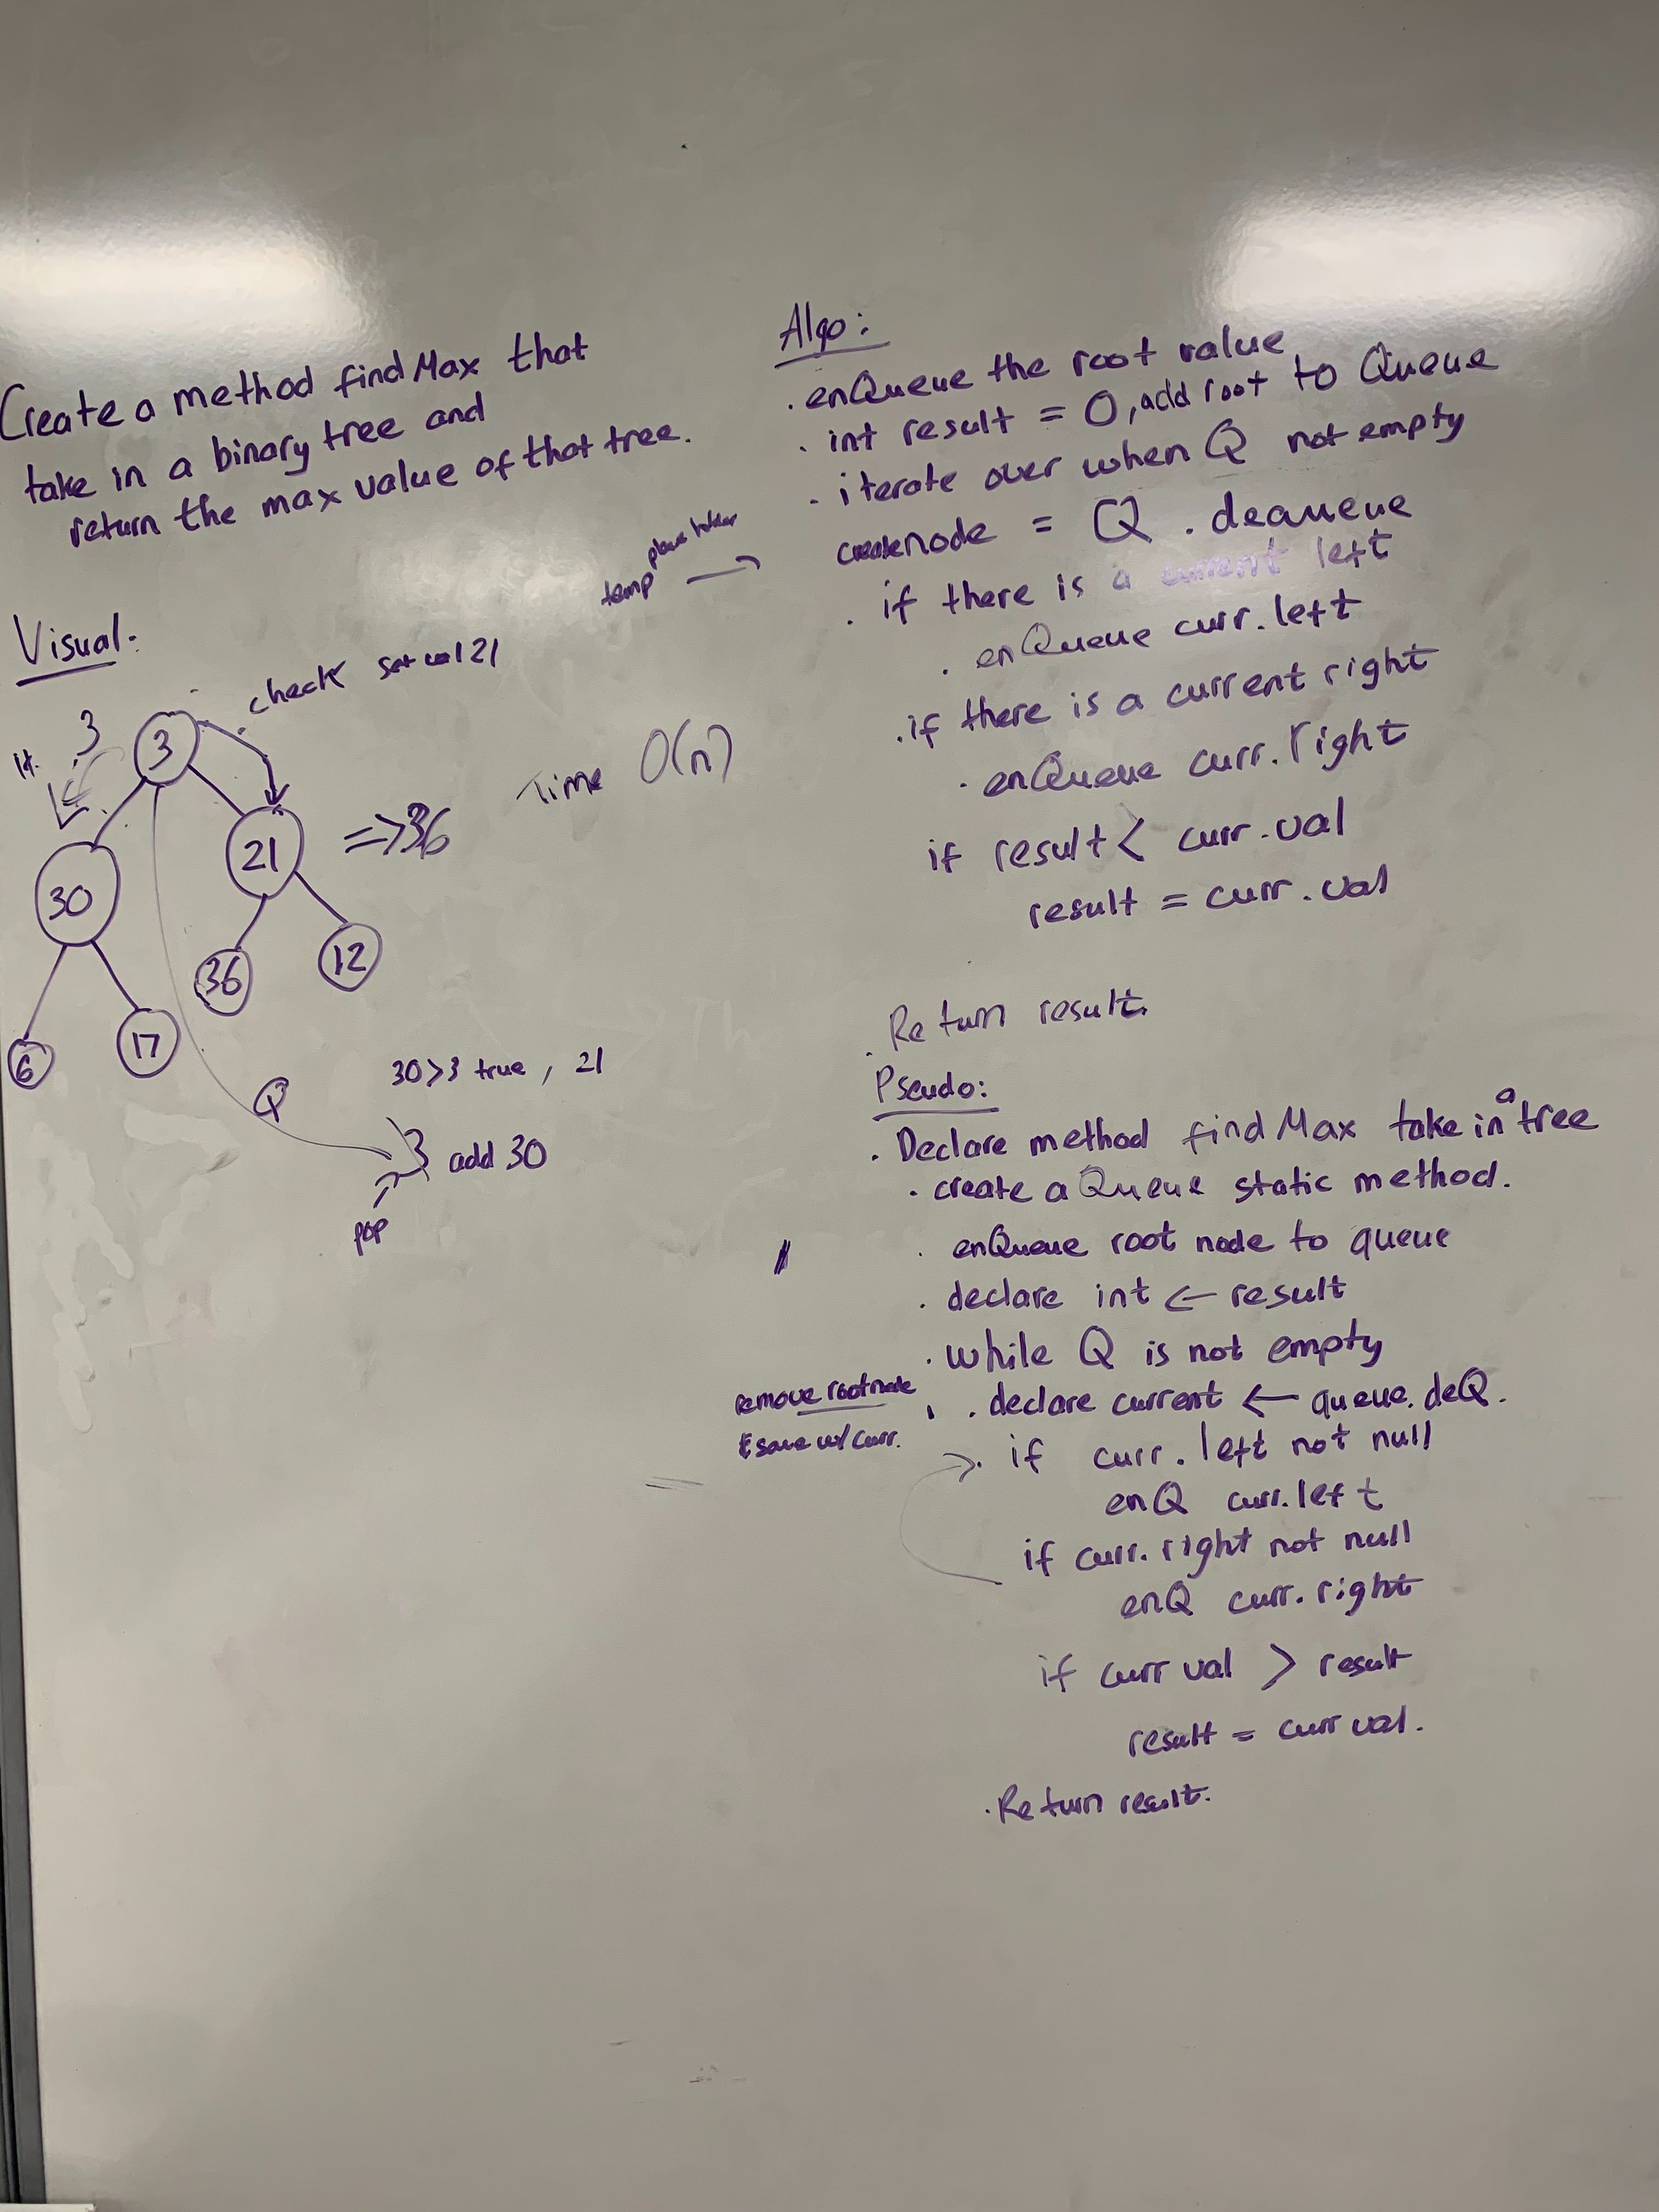 Create a method findMax that
take in a binary tree and
return the max value of that tree.
Visual:
check set val 21
3
3
30
21
=>36
Time O(n)
36
12
6
17
30>3 true, 21
Q
3 add 30
pop
Algo:
. enQueue the root value
. int result = 0, add root to Queue
. iterate over when Q not empty
temp place holder
create node = Q . dequeue
. if there is a current left
. enQueue curr. left
. if there is a current right
. enQueue curr. right
if result < curr. val
result = curr. val
. Return result.
Pseudo:
. Declare method findMax take in a tree
. create a Queue static method.
. enQueue root node to queue
. declare int <- result
. while Q is not empty
remove root node
& save w/ curr.
. declare current <- queue. deQ.
. if curr. left not null
enQ curr. left
if curr. right not null
enQ curr. right
if curr val > result
result = curr val.
. Return result.